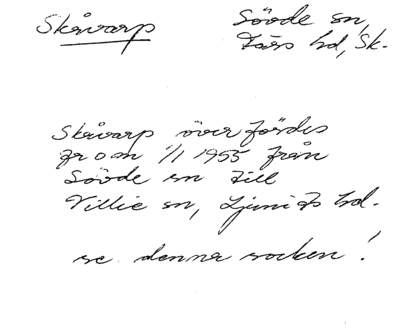 Skårarp
Sövde sn,
Färs hd, Sk.
Skårarp överfördes
fr o m 1/1 1955 från
Sövde sn till
Villie sn, Ljunits hd.
se denna socken!